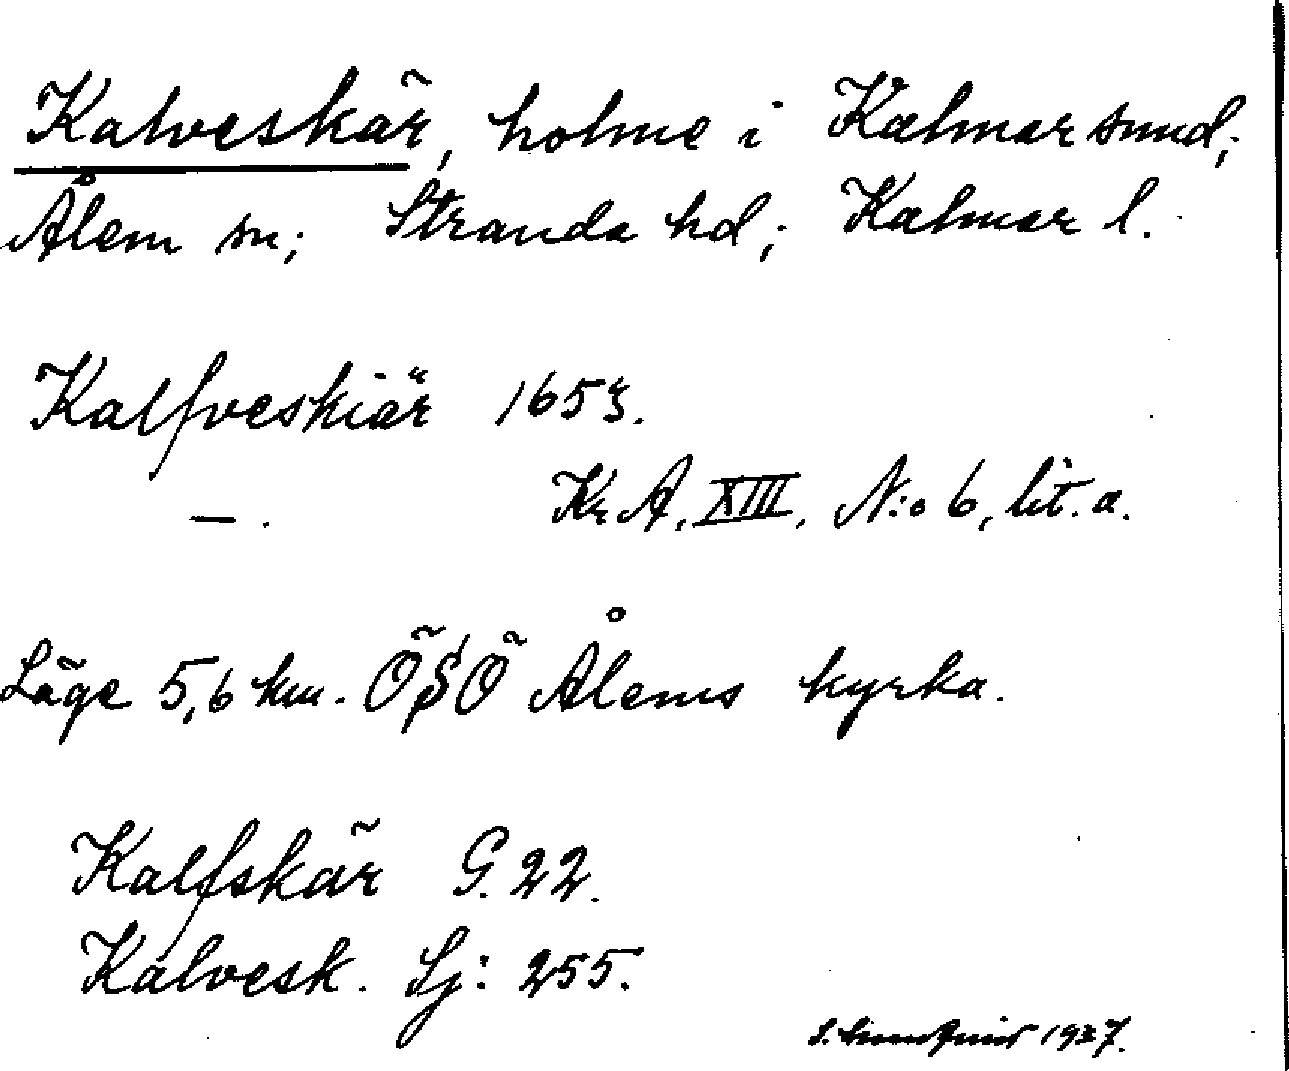 Kalveskär, holme i Kalmarsund;
Ålem sn; Stranda hd; Kalmar l.
Kalfveskiär 1653.
—. Kr. A, XIII, N:o 6, lit. a.
Läge 5,6 km. ÖSÖ Ålems kyrka.
Kalfskär G. 22.
Kalvesk. Sj: 255.
S. 1937.